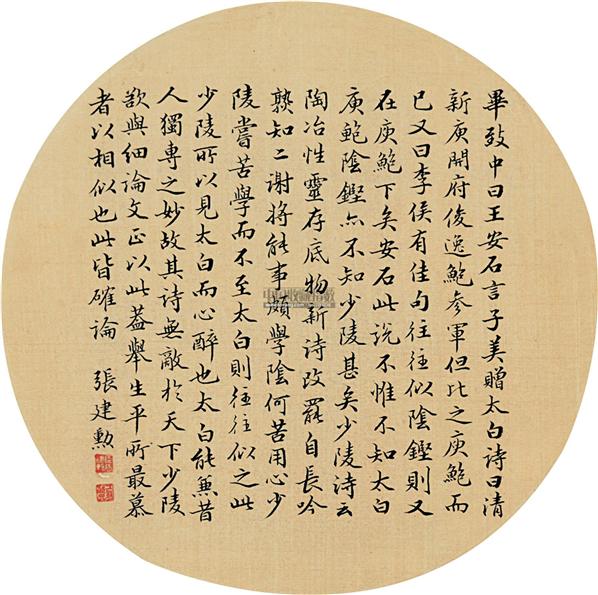 畢致中曰王安石言子美贈太白詩曰清
新庾開府俊逸鮑參軍但比之庾鮑而
已又曰李侯有佳句往往似陰鏗則又
在庾鮑下矣安石此說不惟不知太白
庾鮑陰鏗亦不知少陵甚矣少陵詩云
陶冶性靈存底物新詩改罷自長吟
熟知二謝將能事頗學陰何苦用心少
陵嘗苦學而不至太白則往往似之此
少陵所以見太白而心醉也太白能兼昔
人獨專之妙故其詩無敵於天下少陵
欲與細論文正以此蓋舉生平所最慕
者以相似也此皆確論 張建勲